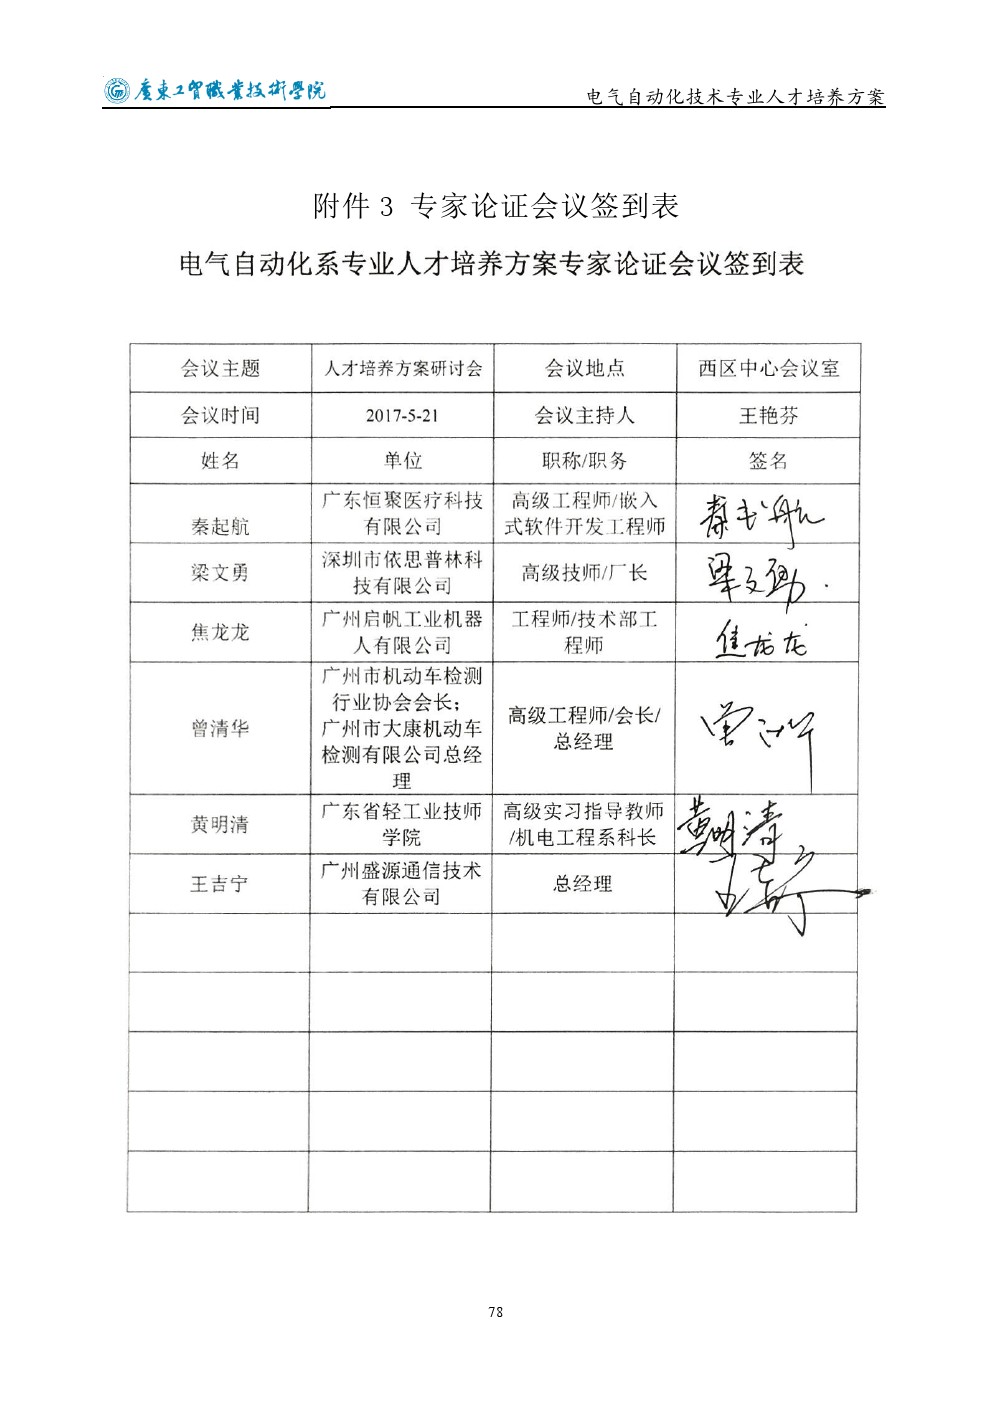 廣東工貿職業技術學院
电气自动化技术专业人才培养方案
附件3 专家论证会议签到表
电气自动化系专业人才培养方案专家论证会议签到表
会议主题 人才培养方案研讨会 会议地点 西区中心会议室
会议时间 2017-5-21 会议主持人 王艳芬
姓名 单位 职称/职务 签名
秦起航
广东恒聚医疗科技
有限公司
高级工程师/嵌入
式软件开发工程师
梁文勇
深圳市依思普林科
技有限公司
高级技师/厂长
梁文勇
焦龙龙
广州启帆工业机器
人有限公司
工程师/技术部工
程师
焦龙龙
曾清华
广州市机动车检测
行业协会会长；
广州市大康机动车
检测有限公司总经
理
高级工程师/会长/
总经理
黄明清
广东省轻工业技师
学院
高级实习指导教师
/机电工程系科长
黄明清
王吉宁
广州盛源通信技术
有限公司
总经理
78